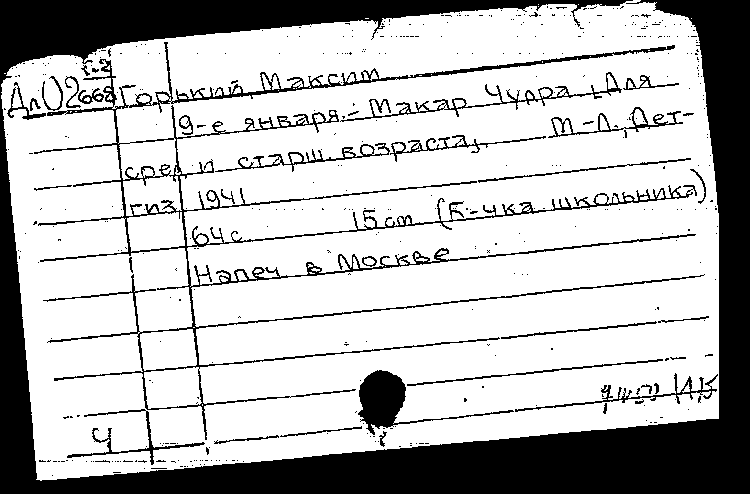 Г-2
Дл02668 Горький, Максим
9-е января.- Макар Чудра [Для
сред. и старш. возраста].    М.-Л., Дет-
гиз, 1941
64 с.    15 cm (Б-чка школьника)
Напеч. в Москве
4